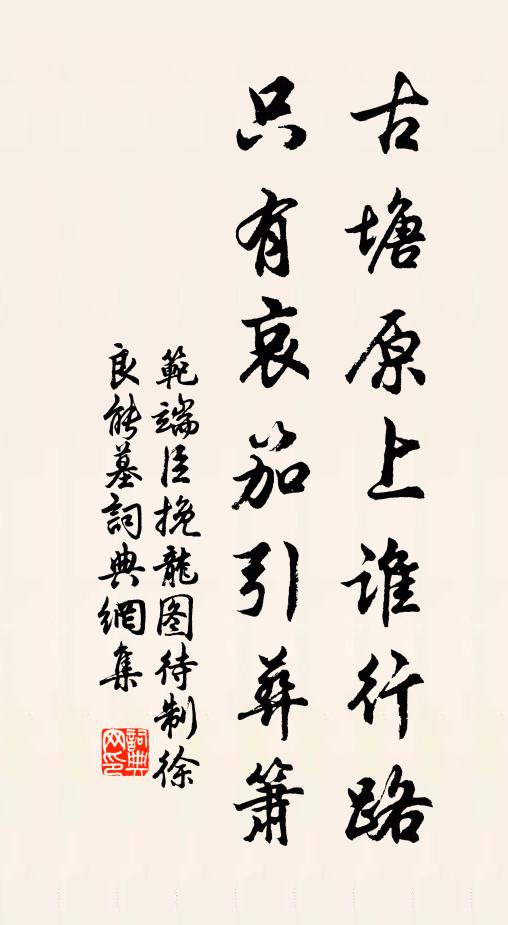 古塘原上谁行路
只有哀笳引葬箫
範端臣挽龍图待制徐
良能墓詞典網集
詞典网印